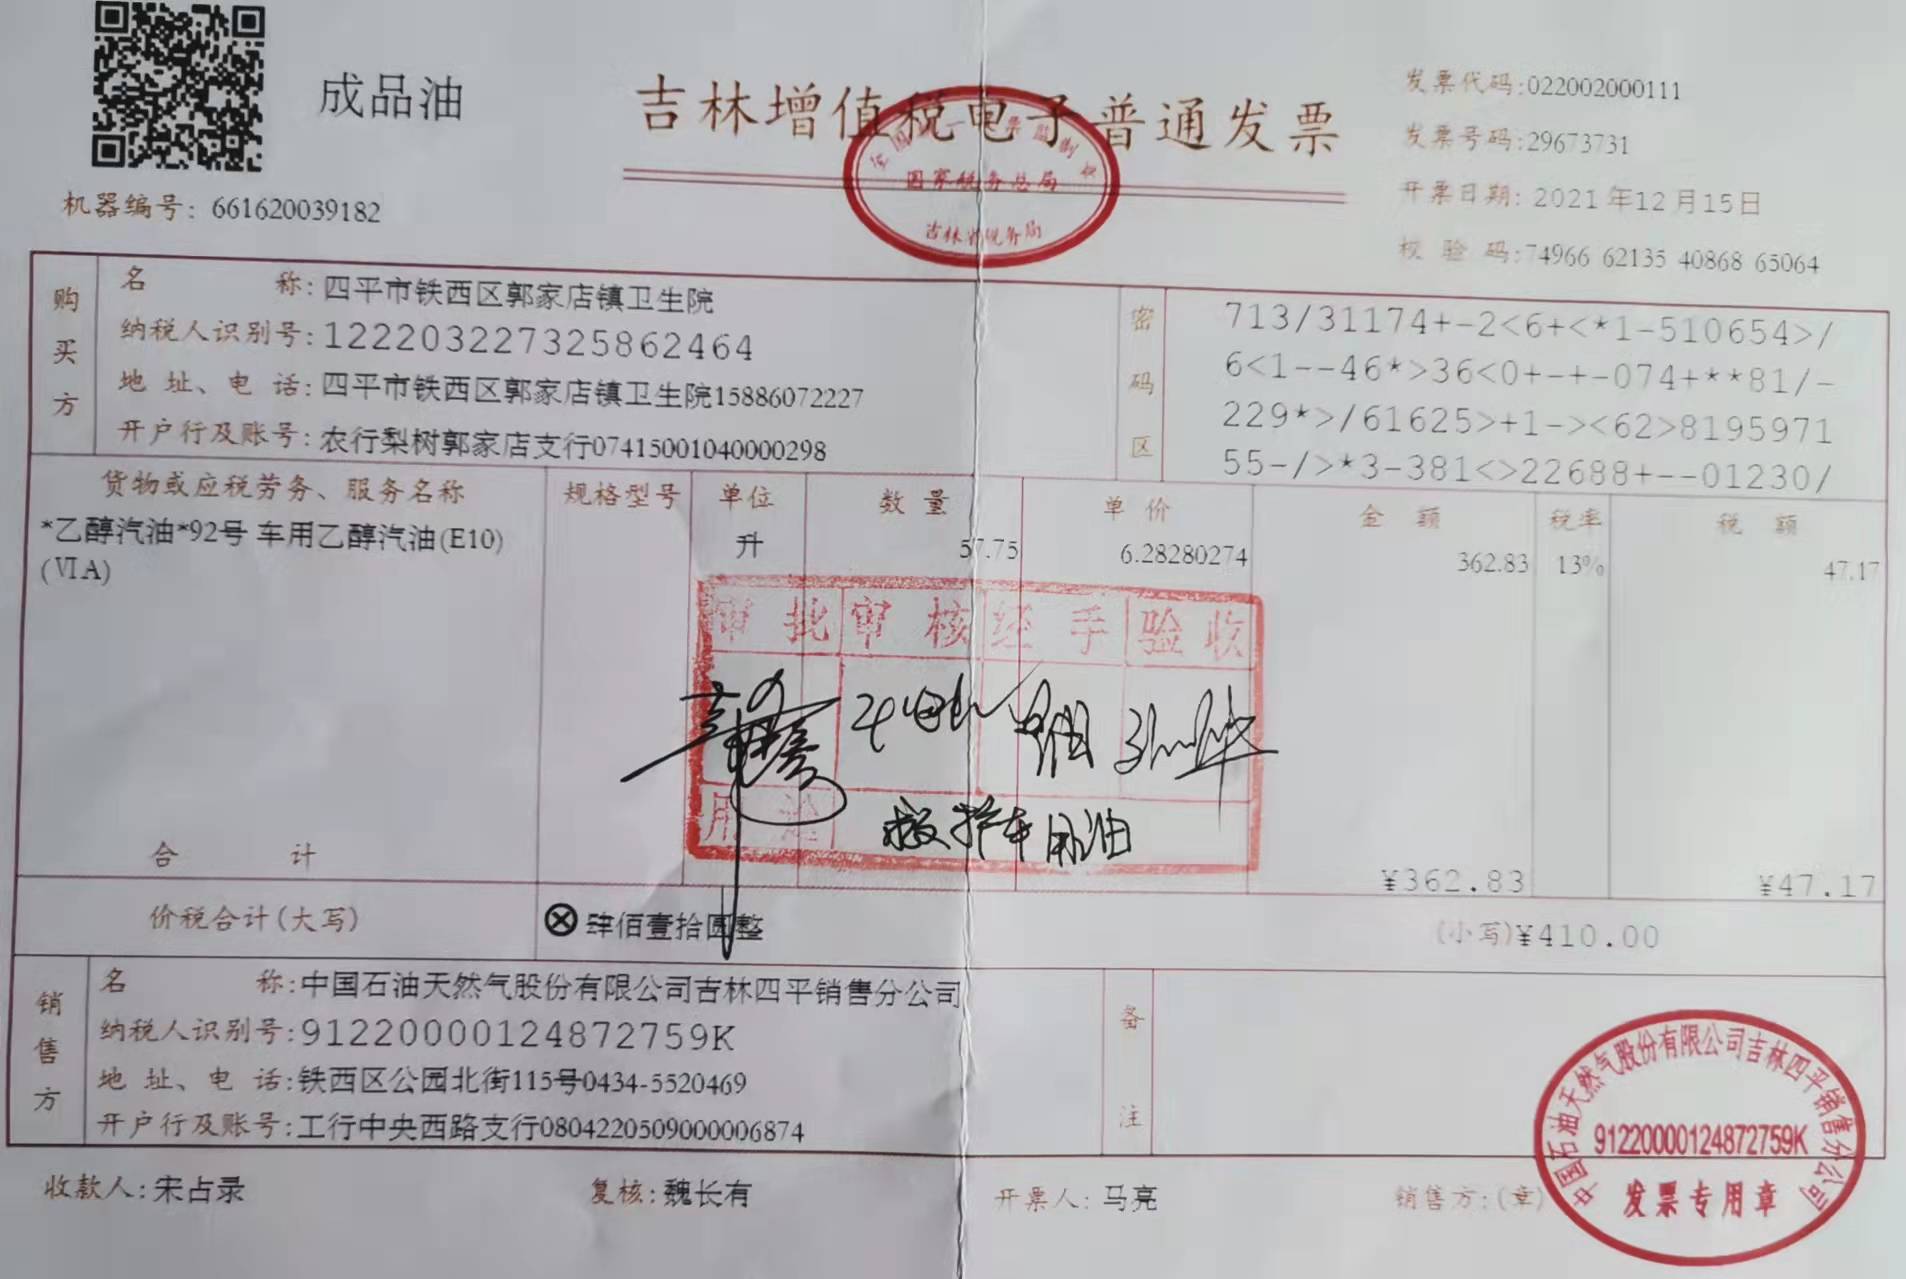 成品油
吉林增值税电子普通发票
国家税务总局
吉林省税务局
发票代码:022002000111
发票号码:29673731
开票日期: 2021年12月15日
校验码:74966 62135 40868 65064
机器编号: 661620039182
购买方
名称:四平市铁西区郭家店镇卫生院
纳税人识别号:122203227325862464
地址、电话:四平市铁西区郭家店镇卫生院15886072227
开户行及账号:农行梨树郭家店支行07415001040000298
密码区
713/31174+-2<6+<*1-510654>/
6<1--46*>36<0+-+-074+**81/-
229*>/61625>+1-><62>8195971
55-/>*3-381<>22688+--01230/
货物或应税劳务、服务名称 规格型号 单位 数量 单价 金额 税率 税额
*乙醇汽油*92号 车用乙醇汽油(E10) 升 57.75 6.28280274 362.83 13% 47.17
(ⅥA)
审批 审核 经手 验收
用途 救护车用油
合计 ¥362.83 ¥47.17
价税合计(大写) ⊗肆佰壹拾圆整 (小写)¥410.00
销售方
名称:中国石油天然气股份有限公司吉林四平销售分公司
纳税人识别号:91220000124872759K
地址、电话:铁西区公园北街115号0434-5520469
开户行及账号:工行中央西路支行0804220509000006874
备注
中国石油天然气股份有限公司吉林四平销售分公司
91220000124872759K
发票专用章
收款人:宋占录 复核:魏长有 开票人:马亮 销售方:(章)